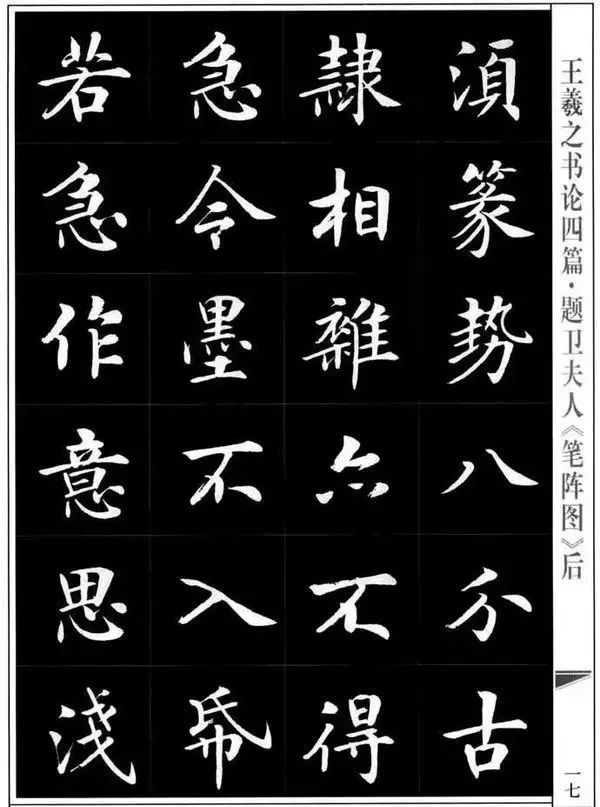 王羲之书论四篇·题卫夫人《笔阵图》后
一七
湏篆勢八分古
隷相雜亦不得
急令墨不入帋
若急作意思淺